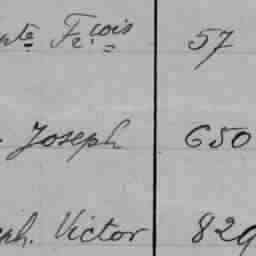 pte Fçois 57
Joseph 650
ph. Victor 829